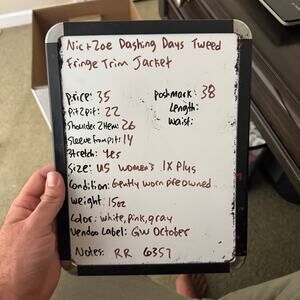 Nic+Zoe Dashing Days Tweed
Fringe Trim Jacket
Price: 35
Postmark: 38
Pit2pit: 22
Length:
Shoulder2Hem: 26
Waist:
Sleeve from pit: 14
Stretch: yes
Size: US Women's 1X Plus
Condition: Gently worn preowned
Weight: 15oz
Color: white, pink, gray
Vendoo Label: GW October
Notes: RR 6357